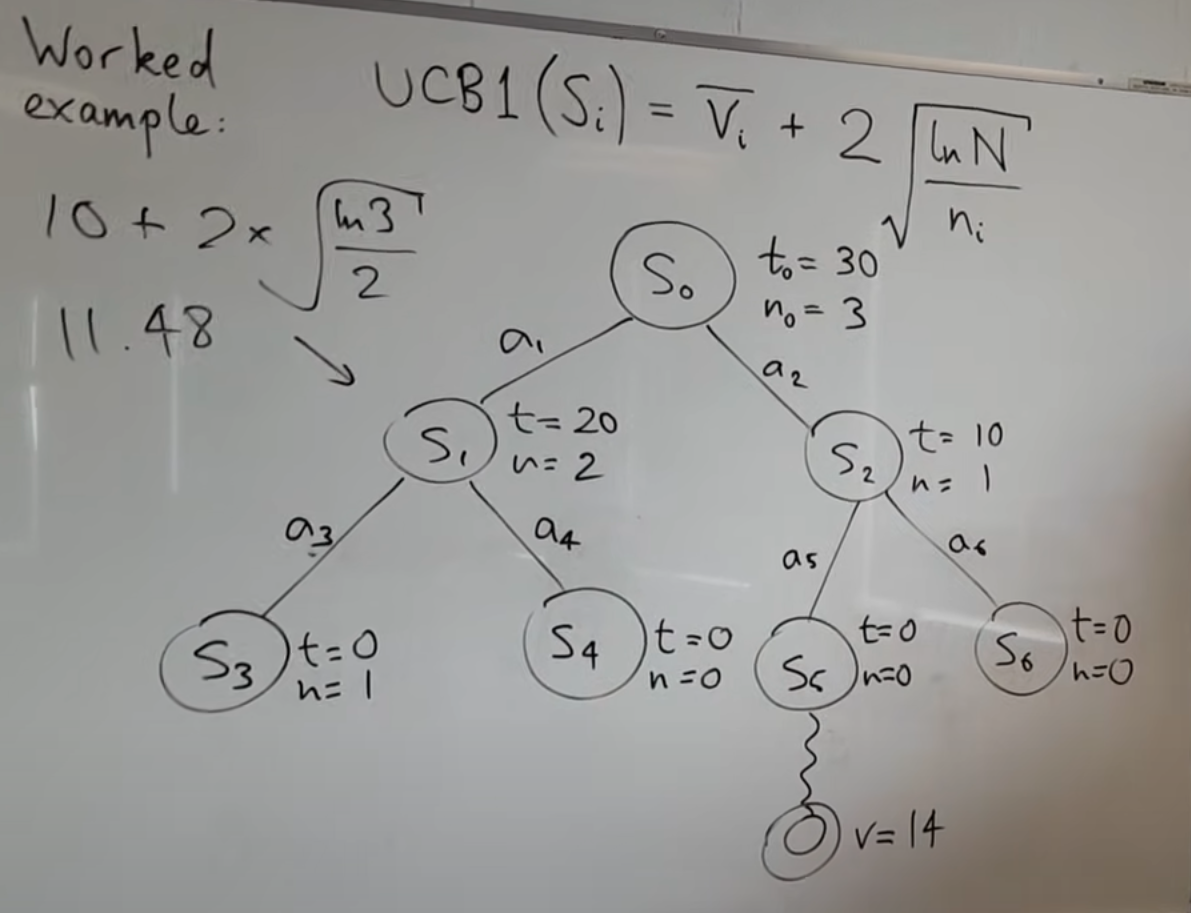 Worked
example:
UCB1(Sᵢ) = V̅ᵢ + 2 √(ln N / nᵢ)
10 + 2 × √(ln 3 / 2)
11.48
S₀
t₀ = 30
n₀ = 3
a₁
a₂
S₁
t = 20
n = 2
S₂
t = 10
n = 1
a₃
a₄
a₅
a₆
S₃
t = 0
n = 1
S₄
t = 0
n = 0
S₅
t=0
n=0
S₆
t=0
n=0
v = 14